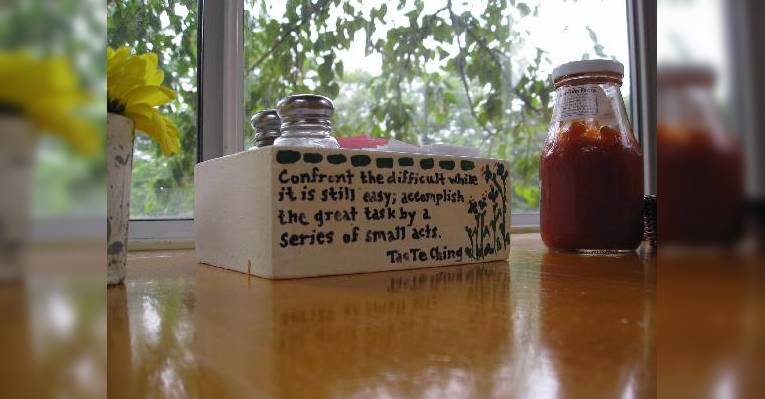 Confront the difficult while
it is still easy; accomplish
the great task by a
series of small acts.
Tao Te Ching